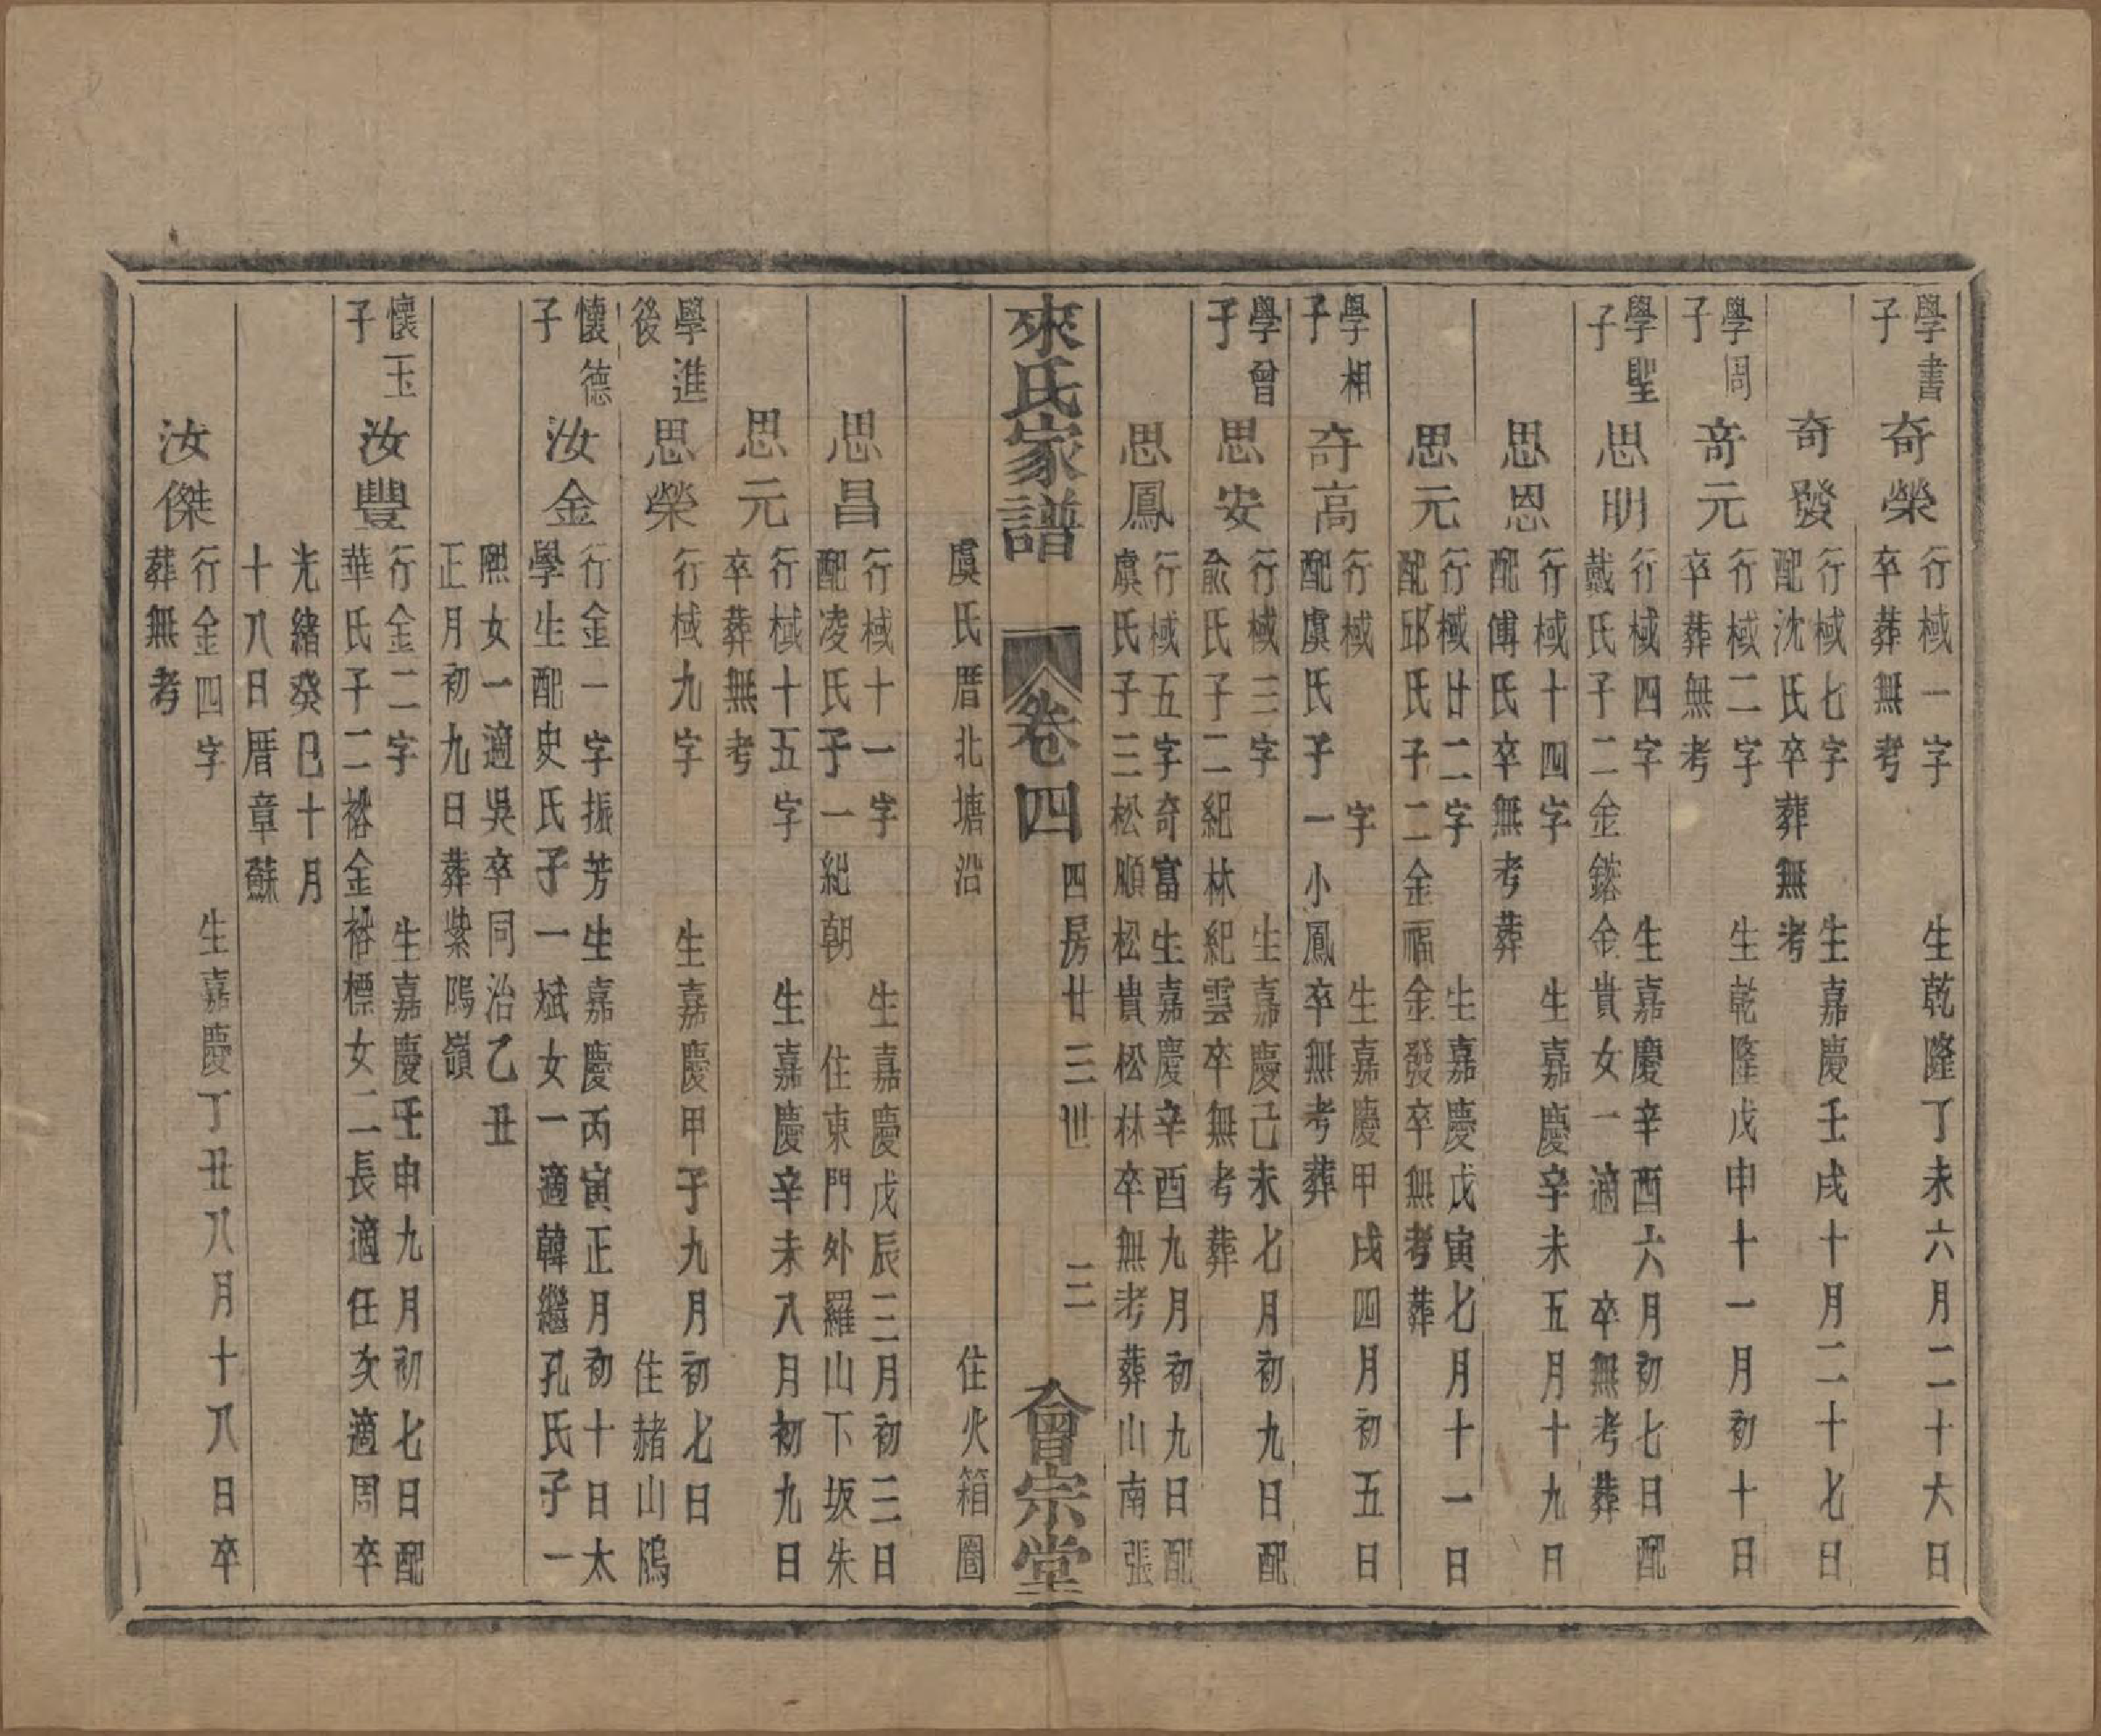 學書子
奇榮
行棫一字　生乾隆丁未六月二十六日
卒葬無考
奇發
行棫七字　生嘉慶壬戌十月二十七日
配沈氏卒葬無考
學周子
奇元
行棫二字　生乾隆戊申十一月初十日
卒葬無考
學聖子
思明
行棫四字　生嘉慶辛酉六月初七日配
戴氏子二金鎔金貴女一適　卒無考葬
思恩
行棫十四字　生嘉慶辛未五月十九日
配傅氏卒無考葬
思元
行棫廿二字　生嘉慶戊寅七月十一日
配邱氏子二金福金發卒無考葬
學相子
奇高
行棫　字　生嘉慶甲戌四月初五日
配虞氏子一小鳳卒無考葬
學曾子
思安
行棫三字　生嘉慶己未七月初九日配
俞氏子二紀林紀雲卒無考葬
思鳳
行棫五字奇富生嘉慶辛酉九月初九日配
虞氏子三松順松貴松林卒無考葬山南張
來氏家譜　卷四　四房廿三世　三　會宗堂
住火箱圈
虞氏厝北塘沿
思昌
行棫十一字　生嘉慶戊辰三月初三日
配凌氏子一紀朝　住東門外羅山下坂朱
思元
行棫十五字　生嘉慶辛未八月初九日
卒葬無考
學進後
思榮
行棫九字　生嘉慶甲子九月初七日
住赭山隖
懷德子
汝金
行金一字振芳生嘉慶丙寅正月初十日太
學生配史氏子一斌女一適韓繼孔氏子一
熙女一適吳卒同治乙丑
正月初九日葬柴隖嶺
懷玉子
汝豐
行金二字　生嘉慶壬申九月初七日配
華氏子二裕金裕標女二長適任次適周卒
光緒癸巳十月
十八日厝章蘇
汝傑
行金四字　生嘉慶丁丑八月十八日卒
葬無考